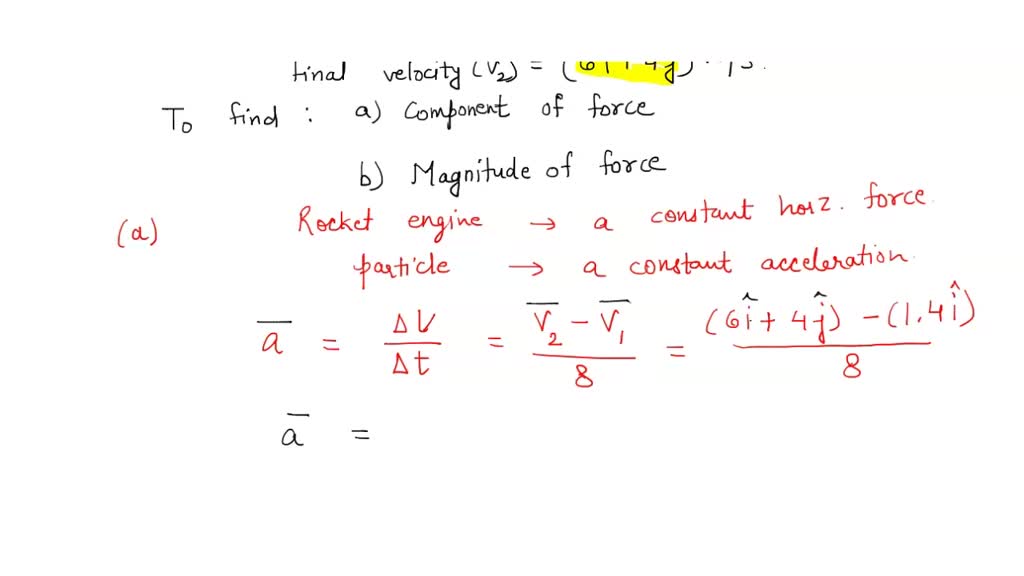 final velocity (V₂) = (6î + 4ĵ) m/s.
To find : a) Component of force
b) Magnitude of force
(a) Rocket engine → a constant horz. force.
particle → a constant acceleration.
a̅ = ΔV/Δt = (V̅₂ − V̅₁)/8 = ((6î + 4ĵ) − (1.4î))/8
a̅ =